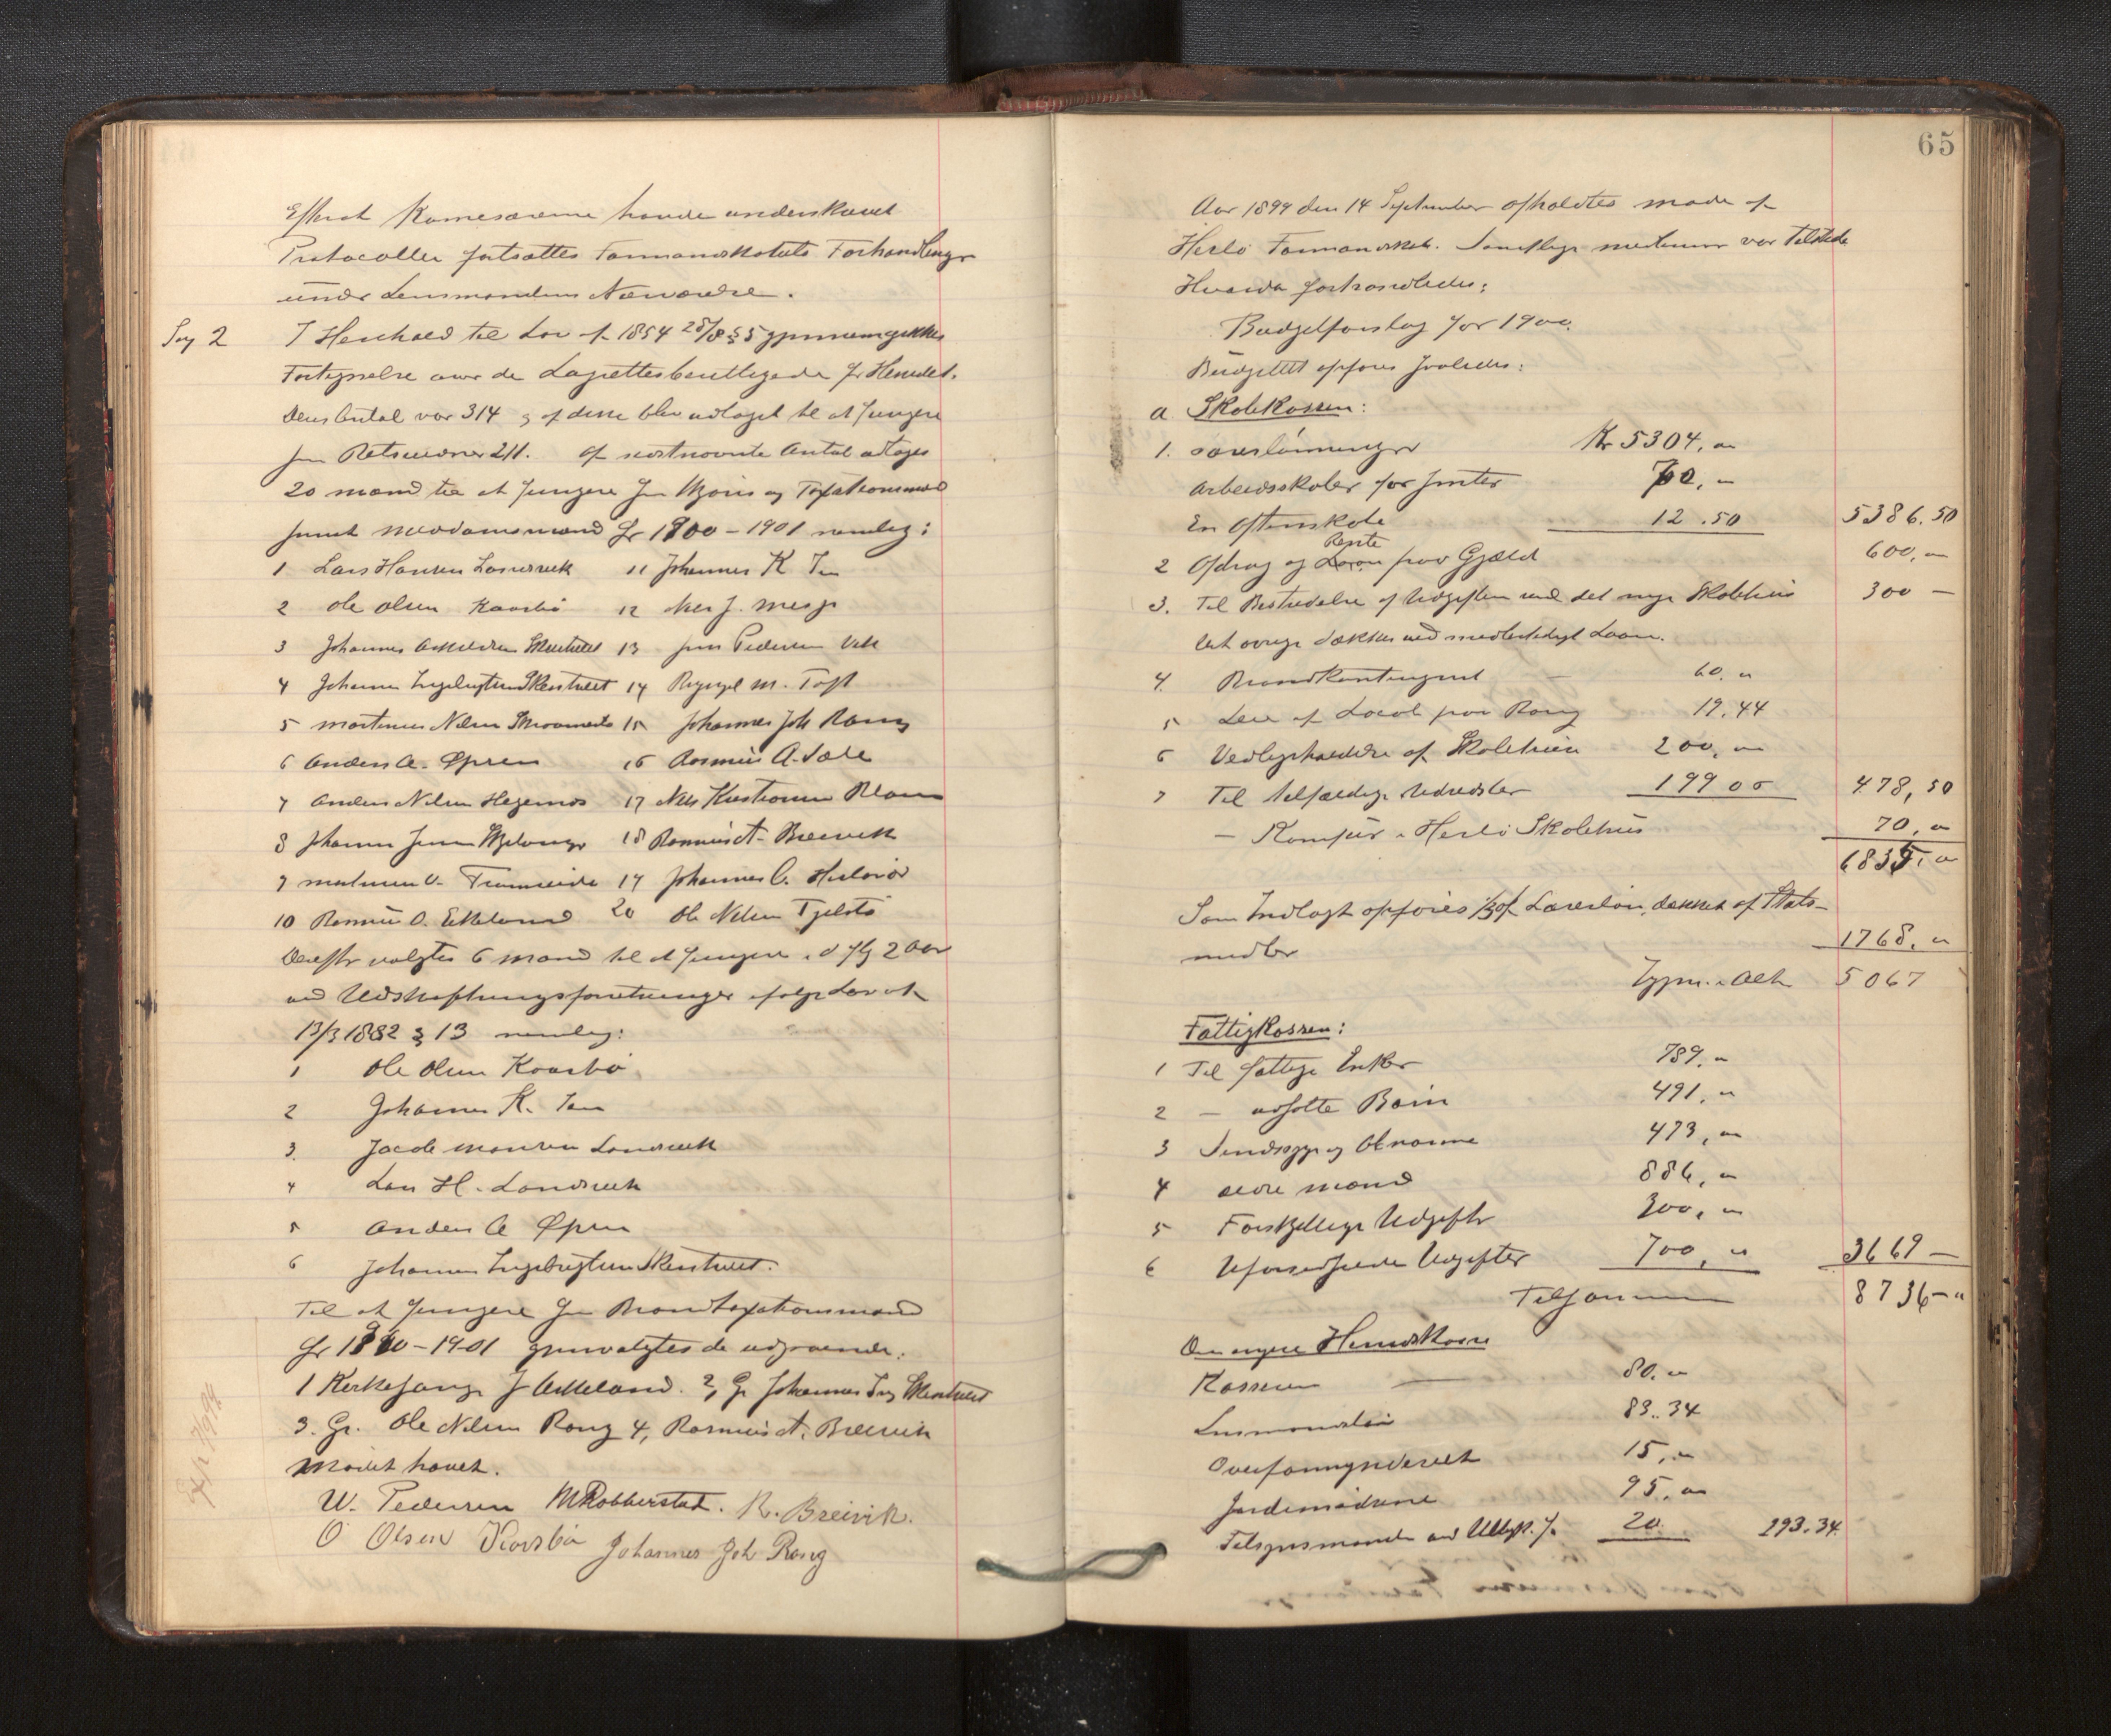 Efterat Komesærerne havde underskrevet
Protocollen fortsattes Formandskabets Forhandlinger
under Lensmandens Nærværelse.
Sag 2 I Henhold til Lov af 1854 28/8 § 5 gjennemgikkes
Fortegnelse over de Lagrettesberettigede for Herredet.
Deres Antal var 314 og af disse blev udtaget til at fungere
som Retsvidner 211. Af sidstnævnte Antal udtoges
20 mænd til at fungere som Skjøns og Taxationsmænd
samt meddomsmænd for 1900-1901 nemlig:
1 Lars Hansen Landsvik 11 Johannes K
2 Ole Olsen Kaarbø 12 Nils J.
3 Johannes Skurtveit 13 Jens Pedersen
4 Johannes Ingebrigtsen Skurtveit 14 M. Toft
5 Mortinus Nilsen 15 Johannes Joh Rong
6 Anders A. Øpsen 16 Rasmus A. Sæle
7 Anders Nilsen Hagenæs 17 Nils Kristiansen
8 Johannes Jensen 18 Rasmus A. Breivik
9 O. 19 Johannes C. Herløvær
10 Rasmus O. Eikeland 20 Ole Nilsen Tjeldstø
Derefter valgtes 6 mænd til at fungere i de flg 2 Aar
ved Udskiftningsforretninger ifølge Lov af
13/3 1882 § 13 nemlig:
1 Ole Olsen Kaarbø
2 Johannes K.
3. Jacob Monsen Landsvik
4 Lars H. Landsvik
5 Anders A Øpsen
6 Johannes Ingebrigtsen Skurtveit.
Til at fungere som Brandtaxationsmænd
for 1900-1901 gjenvalgtes de udgaaende:
1 Kirkesanger J Askeland. 2, Gr Johannes Ing Skurtveit
3. Gr. Ole Nilsen Rong 4, Rasmus A. Breivik
Mødet hævet.
W. Pedersen MRobberstad. R. Breivik.
O Olsen Kaarbø Johannes Joh Rong
65
Aar 1899 den 14 September afholdtes møde af
Herlø Formandskab. Samtlige medlemmer var tilstede
Hvorda forhandledes:
Budgetforslag for 1900.
Budgettet opføres saaledes:
a Skolekassen:
1. Lærerlønninger Kr 5304, "
Arbeidsskoler for Jenter 70, "
En Aftenskole 12.50 5386.50
2 Afdrag og Rente paa Gjæld 600, "
3. Til Bestridelse af Udgiften ved det nye Skolehus 300 —
Det øvrige dækkes ved midlertidigt Laan.
4. Brandkontingent — 60. "
5 Leie af Local paa Rong 19.44
6 Vedligeholdelse af Skolehuse 200, "
7 Til tilfældige Udredsler 199 06 478,50
— Komfur i Herlø Skolehus 70, "
6835, "
Som Indtægt opføres 1/3 of Lærerløn, dækket af Stats-
midler 1768. "
Igjen i Alt 5067
Fattigkassen:
1 Til fattige Enker 789. "
2 — udsatte Børn 491, "
3 Sindssyge og 473, "
4 ældre mænd 886, "
5 Forskjellige Udgifter 300, "
6 Uforudseede Udgifter 700, " 3669 —
Tilsammen 8736 — "
Den egne Herredskasse
Kasseren — 80. "
Lensmandsløn 83.34
Overformynderiet 15, "
Jordemødrene 95, "
Tilsynsmanden ved 20. 293.34